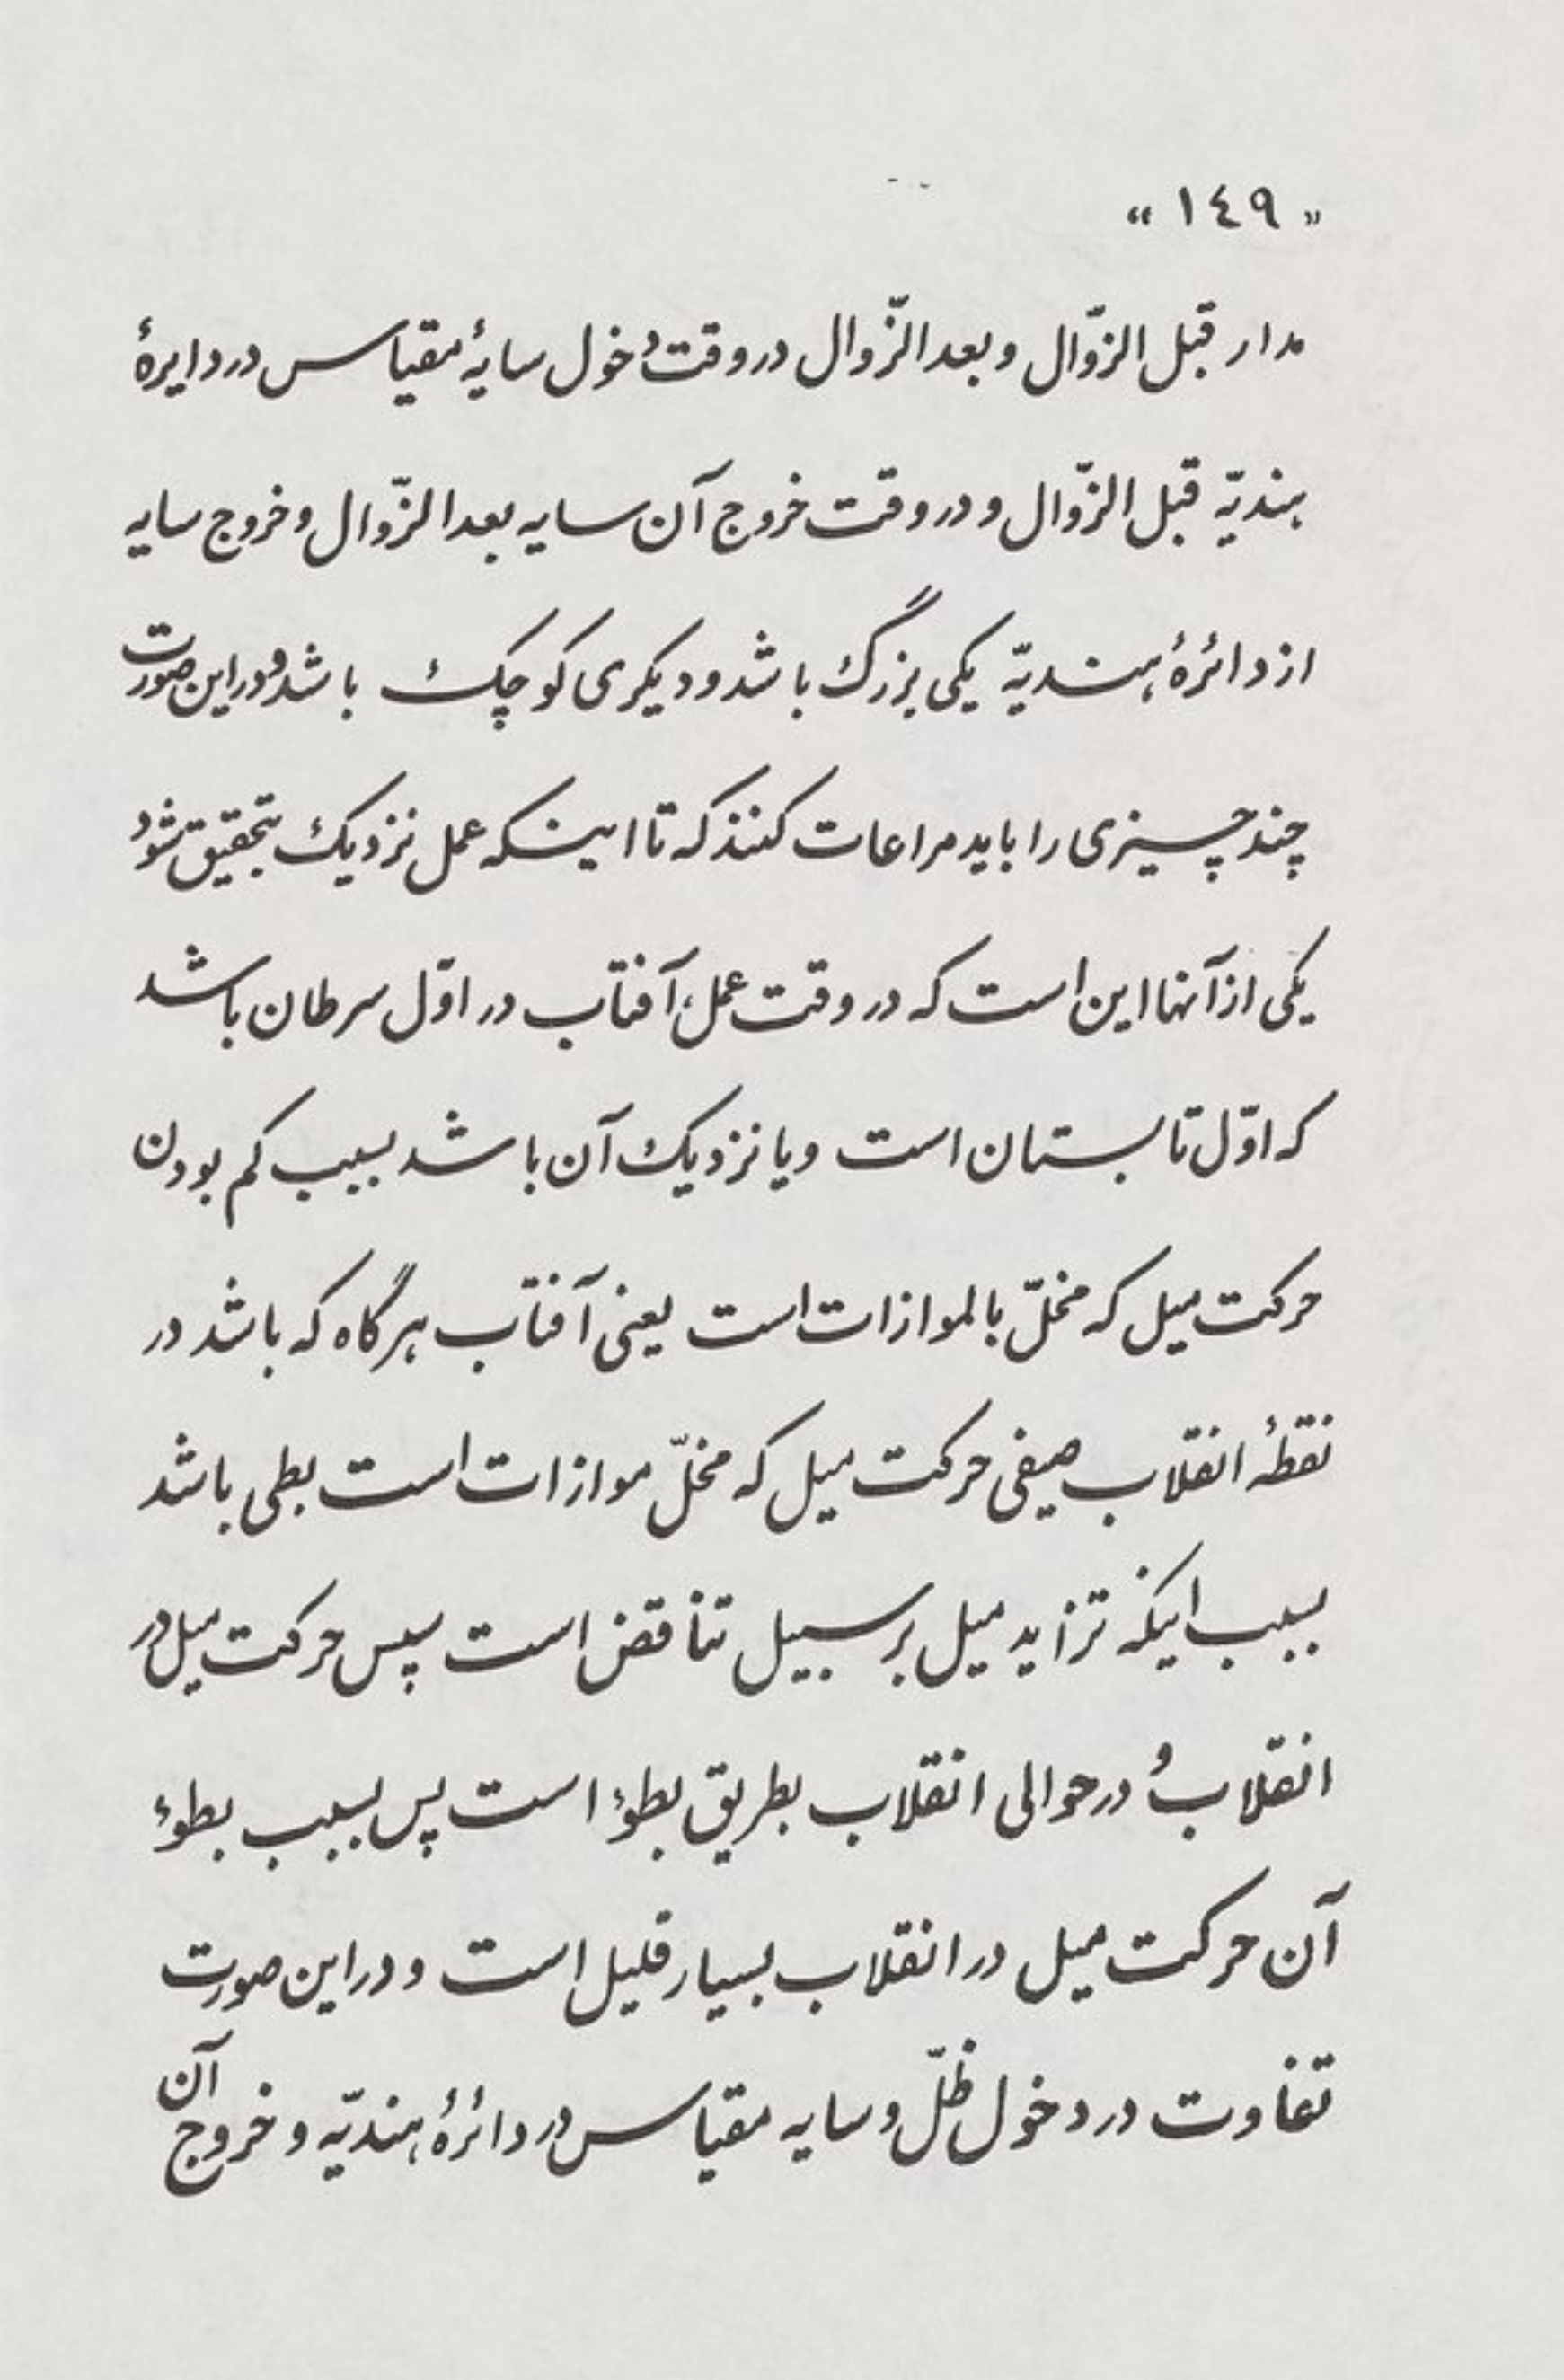 « ١٤٩ »
مدار قبل الزّوال و بعد الزّوال در وقت دخول سایهٔ مقیاس در دایرهٔ
هندیّه قبل الزّوال و در وقت خروج آن سایه بعد الزّوال و خروج سایه
از دائرهٔ هندیّه یکی بزرگ باشد و دیگری کوچک باشد و در این صورت
چند چیزی را باید مراعات کنند که تا اینکه عمل نزدیک بتحقیق شود
یکی از آنها این است که در وقت عمل، آفتاب در اوّل سرطان باشد
که اوّل تابستان است و یا نزدیک آن باشد بسبب کم بودن
حرکت میل که مخلّ بالموازات است یعنی آفتاب هرگاه که باشد در
نقطهٔ انقلاب صیفی حرکت میل که مخلّ موازات است بطی باشد
بسبب اینکه تزاید میل بر سبیل تناقض است سپس حرکت میل در
انقلاب و در حوالی انقلاب بطریق بطوء است پس بسبب بطوء
آن حرکت میل در انقلاب بسیار قلیل است و در این صورت
تفاوت در دخول ظلّ و سایه مقیاس در دائرهٔ هندیّه و خروج آن